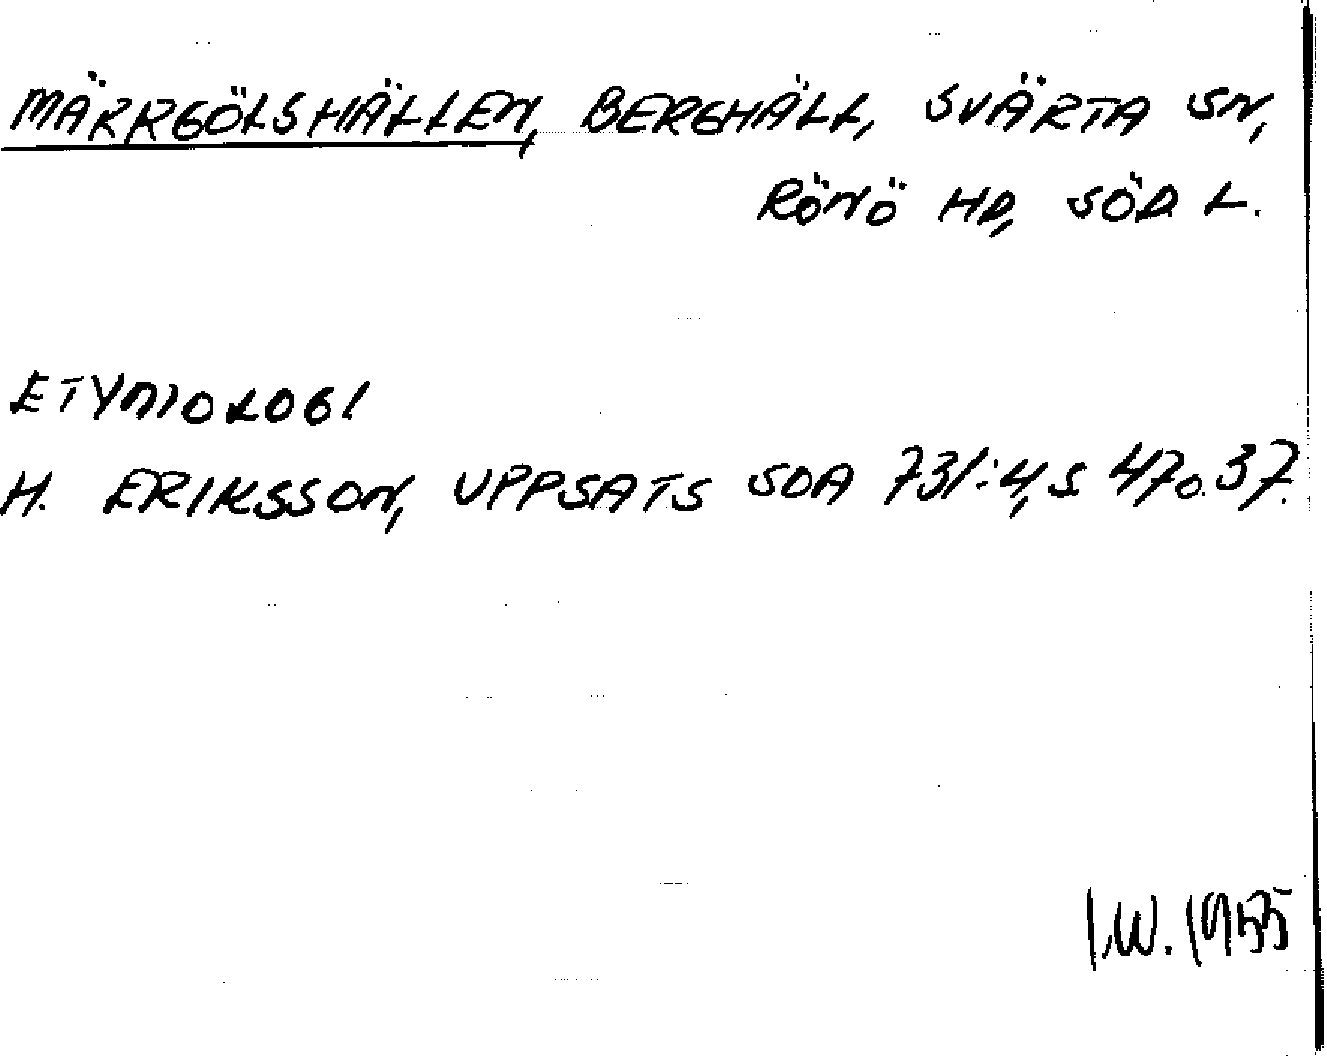 MÄRRGÖLSHÄLLEN, BERGHÄLL, SVÄRTA SN,
RÖNÖ HD, SÖD. L.
ETYMOLOGI
H. ERIKSSON, UPPSATS SOA 731:4, S 47 o. 37.
I.W. 1955